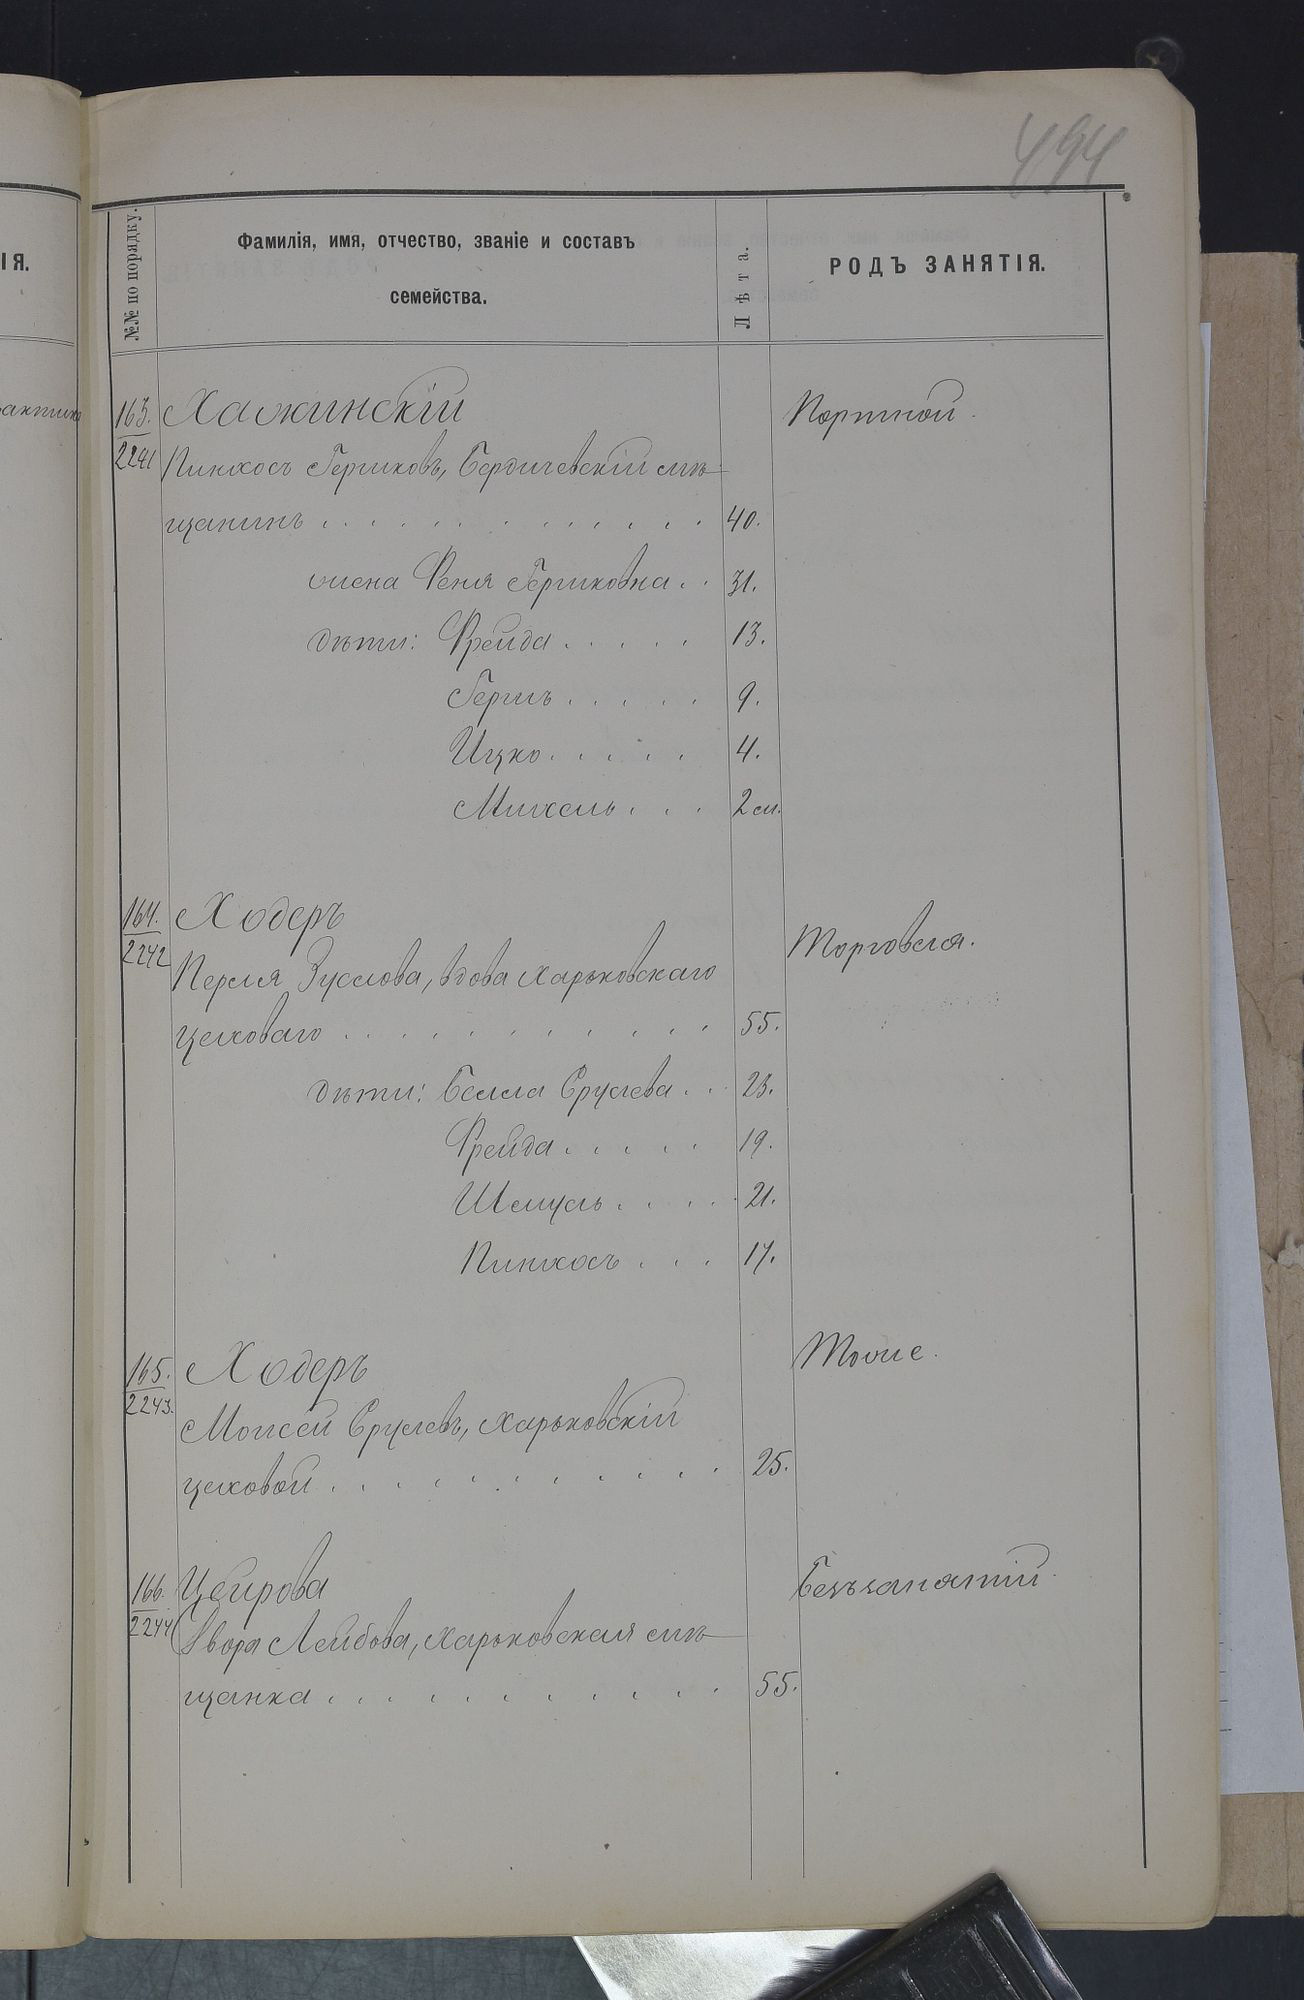 494
ІЯ.
№№ по порядку.
Фамилія, имя, отчество, званіе и составъ
семейства.
Лѣта.
РОДЪ ЗАНЯТІЯ.
163. Хажинскій Портной.
2241 Пинхосъ Гершковъ, Бердичевскій мѣ-
щанинъ . . . . . . . . . . . 40.
жена Феня Гершковна . . 31.
дѣти: Фрейда . . . . . 13.
Гершъ . . . . . 9.
Ицко . . . . . 4.
Михель . . . 2 м.
164. Ходеръ Торговля.
2242 Перля Зуслова, вдова Харьковскаго
цеховаго . . . . . . . . . . . 55.
дѣти: Белла Срулева . . 23.
Фрейда . . . . . 19.
Шмуль . . . . . 21.
Пинхосъ . . . 17.
165. Ходеръ Тоже.
2243. Моисей Срулевъ, Харьковскій
цеховой . . . . . . . . . . . 25.
166. Цеирова Безъ занятій.
2244 Двора Лейбова, Харьковская мѣ-
щанка . . . . . . . . . . . 55.